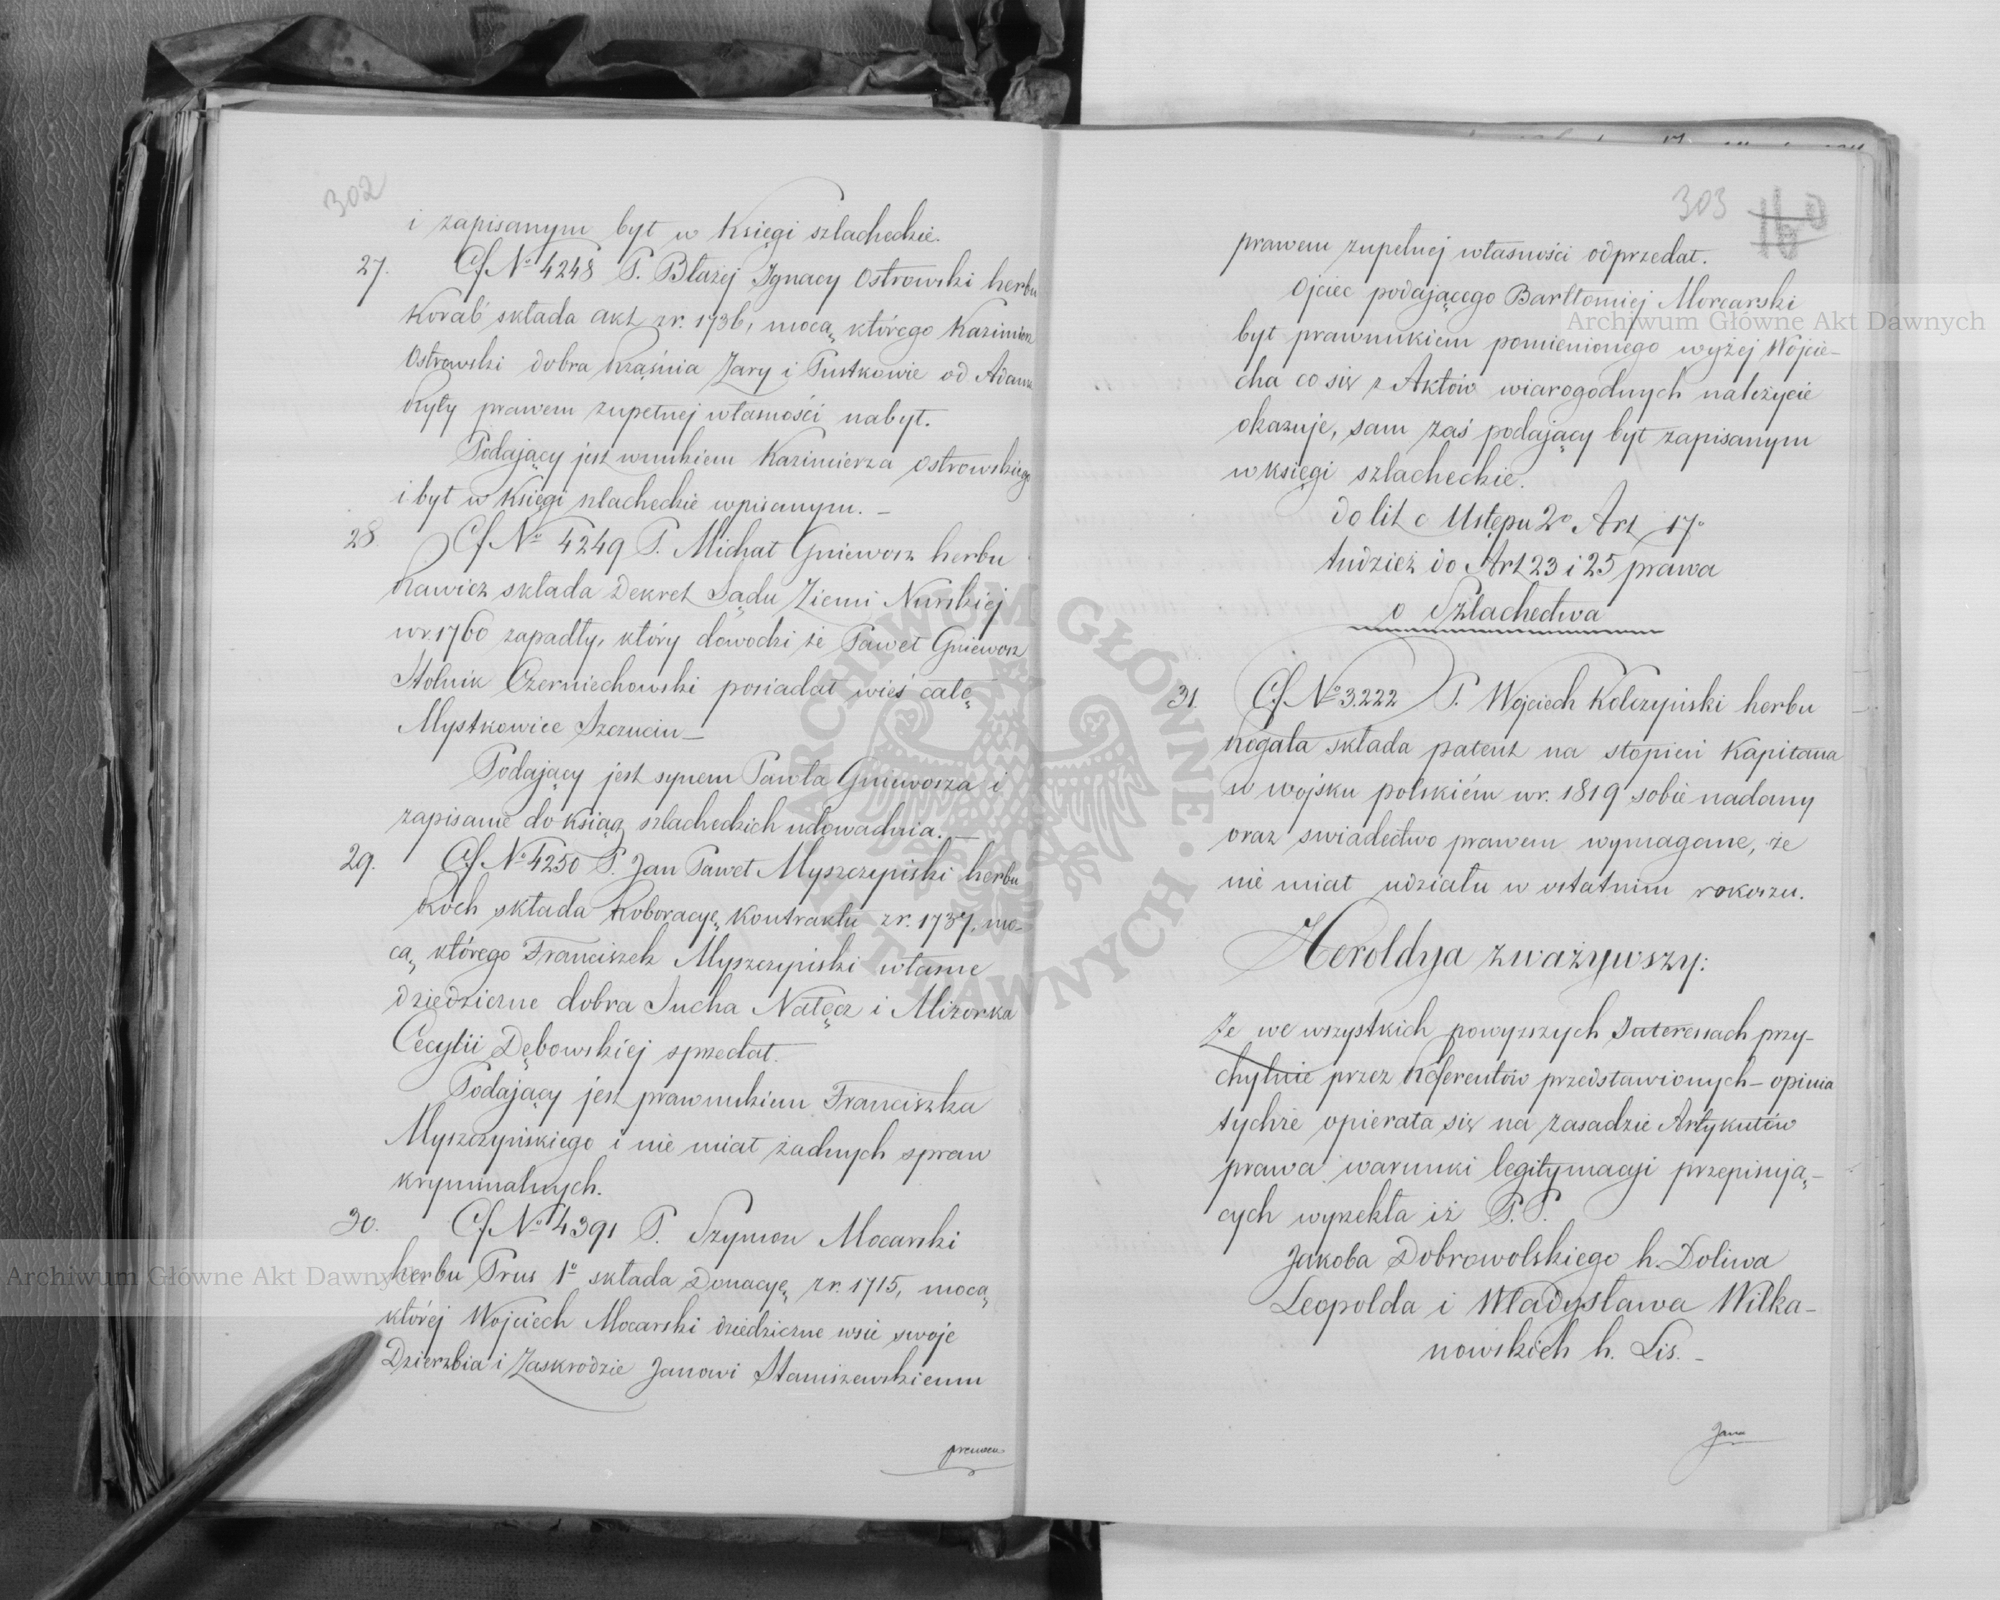 302
i zapisanym był w Księgi szlacheckie.
27. Cf No 4248 P. Błażej Ignacy Ostrowski herbu
Korab składa akt zr. 1736, mocą którego Kazimierz
Ostrowski dobra Krąśnia Żary i Pustkowie od Adama
Ryły prawem zupełnej własności nabył.
Podający jest wnukiem Kazimierza Ostrowskiego
i był w Księgi szlacheckie wpisanym. —
28 Cf No 4249 P. Michał Gniewosz herbu
Rawicz składa Dekret Sądu Ziemi Nurskiej
w r. 1760 zapadły, który dowodzi że Paweł Gniewosz
Stolnik Czerniechowski posiadał wieś całę
Mystkowice Szczucin —
Podający jest synem Pawła Gniewosza i
zapisanie do ksiąg szlacheckich udowadnia. —
29. Cf No 4250 P. Jan Paweł Myszczyński herbu
Roch składa Roboracyę Kontraktu zr. 1737, mo-
cą, którego Franciszek Myszczyński własne
dziedziczne dobra Sucha Nałęcz i Mizerka
Cecylii Dębowskiej sprzedał.
Podający jest prawnukiem Franciszka
Myszczyńskiego i nie miał żadnych spraw
kryminalnych.
30. Cf No 4391 P. Szymon Mocarski
herbu Prus 1o składa Donacyę zr. 1715, mocą
której Wojciech Mocarski dziedziczne wsie swoje
Dzierzbia i Zaskrodzie Janowi Staniszewskiemu
prawem
303
prawem zupełnej własności odprzedał.
Ojciec podającego Bartłomiej Morcarski
był prawnukiem pomienionego wyżej Wojcie-
cha co się z Aktów wiarogodnych należycie
okazuje, sam zaś podający był zapisanym
w księgi szlacheckie.
do lit c Ustępu 2o Art 17o
tudzież do Art 23 i 25 prawa
o Szlachectwa
31. Cf. No 3.222 P. Wojciech Kolczyński herbu
Rogala składa patent na stopień Kapitana
w wojsku polskiém w r. 1819 sobie nadany
oraz swiadectwo prawem wymagane, że
nie miał udziału w ostatnim rokoszu.
Heroldya zważywszy:
Że we wszystkich powyższych Interessach przy-
chylnie przez Referentów przedstawionych — opinia
tychże opierała się na zasadzie Artykułów
prawa warunki legitymacyi przepisują-
cych wyrzekła iż P.P.
Jakoba Dobrowolskiego h. Doliwa
Leopolda i Władysława Wilka-
nowskich h. Lis. —
Jana
Archiwum Główne Akt Dawnych
Archiwum Główne Akt Dawnych
ARCHIWUM GŁÓWNE AKT DAWNYCH